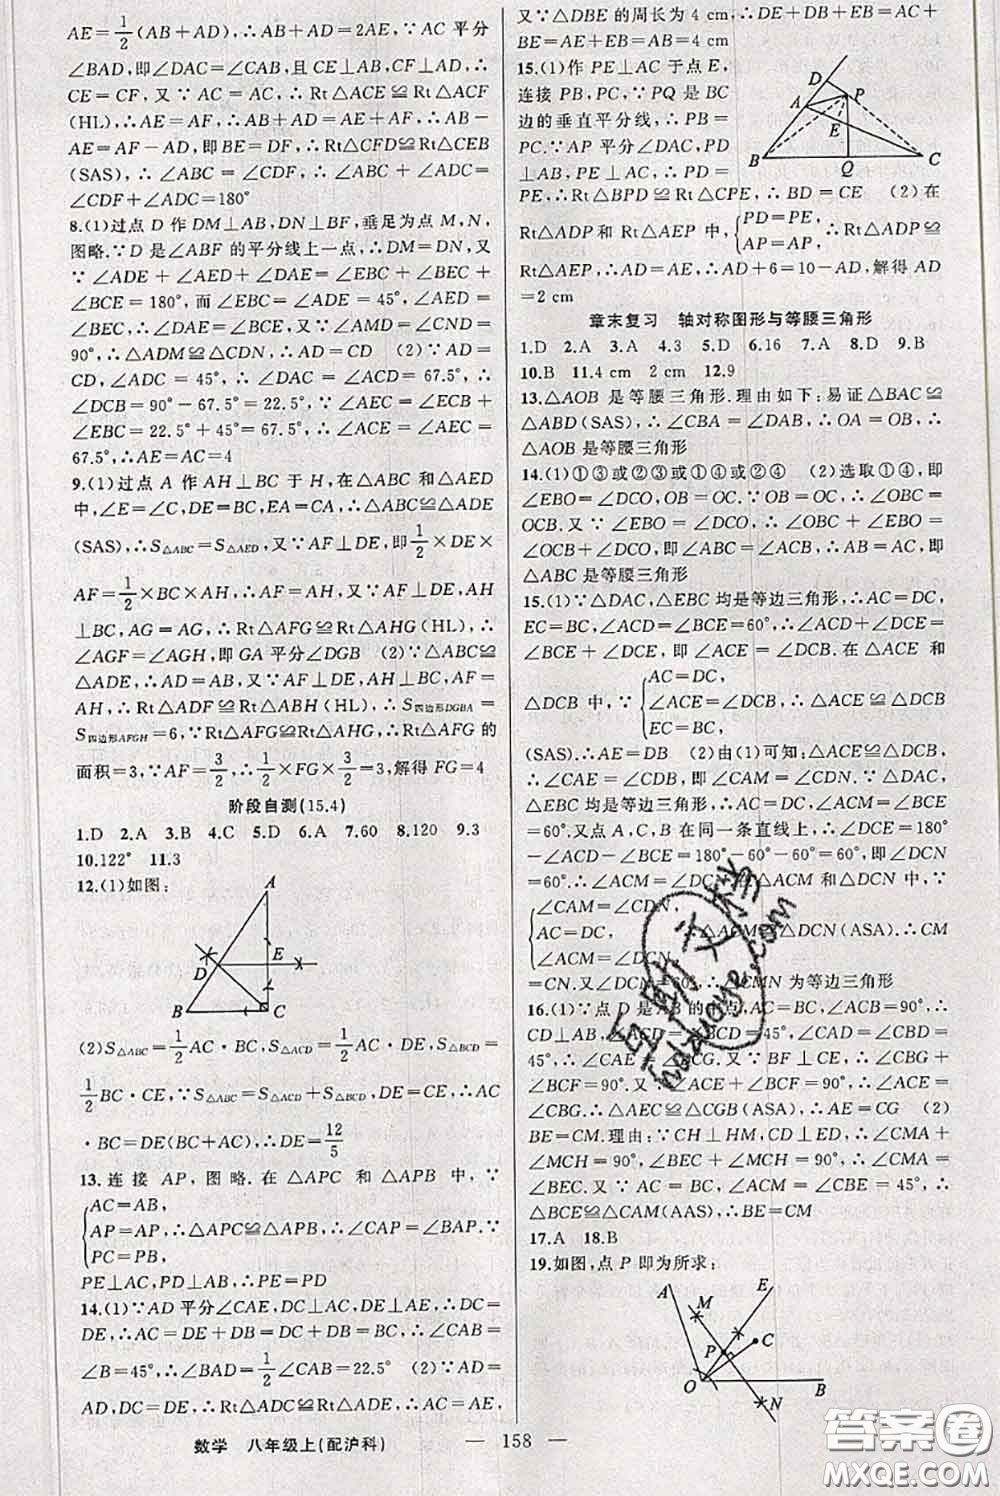 AE=1/2(AB+AD),∴AB+AD=2AE,∵AC 平分
∠BAD,即∠DAC=∠CAB,且 CE⊥AB,CF⊥AD,∴
CE=CF,又∵ AC=AC,∴Rt△ACE≌Rt△ACF
(HL),∴AE=AF,∴AB+AD=AE+AF,∴AB-
AE=AF-AD,即BE=DF,∴Rt△CFD≌Rt△CEB
(SAS),∴∠ABC=∠CDF,∴∠ABC+∠ADC=
∠CDF+∠ADC=180°
8.(1)过点 D 作 DM⊥AB,DN⊥BF,垂足为点 M,N,
图略.∵D 是∠ABF 的平分线上一点,∴DM=DN,又
∵∠ADE+∠AED+∠DAE=∠EBC+∠BEC+
∠BCE=180°,而∠EBC=∠ADE=45°,∠AED=
∠BEC,∴∠DAE=∠BCE,又∵∠AMD=∠CND=
90°,∴△ADM≌△CDN,∴AD=CD (2)∵AD=
CD,∠ADC=45°,∴∠DAC=∠ACD=67.5°,∴
∠DCB=90°-67.5°=22.5°,∵∠AEC=∠ECB+
∠EBC=22.5°+45°=67.5°,∴∠AEC=∠EAC=
67.5°,∴AE=AC=4
9.(1)过点 A 作 AH⊥BC 于 H,在△ABC 和△AED
中,∠E=∠C,DE=BC,EA=CA,∴△ABC≌△ADE
(SAS),∴S△ABC=S△AED,又∵AF⊥DE,即1/2×DE×
AF=1/2×BC×AH,∴AF=AH,又∵AF⊥DE,AH
⊥BC,AG=AG,∴Rt△AFG≌Rt△AHG(HL),∴
∠AGF=∠AGH,即 GA 平分∠DGB (2)∵△ABC≌
△ADE,∴AD=AB,又∵AF⊥DE,AH⊥BC,AF=
AH,∴Rt△ADF≌Rt△ABH(HL),∴S四边形DGBA=
S四边形AFGH=6,∵Rt△AFG≌Rt△AHG,∴Rt△AFG 的
面积=3,∵AF=3/2,∴1/2×FG×3/2=3,解得 FG=4
阶段自测(15.4)
1.D 2.A 3.B 4.C 5.D 6.A 7.60 8.120 9.3
10.122° 11.3
12.(1)如图:
A
E
D
B
C
(2)S△ABC=1/2AC·BC,S△ACD=1/2AC·DE,S△BCD=
1/2BC·CE,∵S△ABC=S△ACD+S△BCD,DE=CE,∴AC
·BC=DE(BC+AC),∴DE=12/5
13.连接 AP,图略.在△APC 和△APB 中,∵
AC=AB,
AP=AP,∴△APC≌△APB,∴∠CAP=∠BAP.∵
PC=PB,
PE⊥AC,PD⊥AB,∴PE=PD
14.(1)∵AD 平分∠CAE,DC⊥AC,DE⊥AE,∴DC=
DE,∴AC=DE+DB=DC+DB=BC,∴∠CAB=
∠B=45°,∴∠BAD=1/2∠CAB=22.5° (2)∵AD=
AD,DC=DE,∴Rt△ADC≌Rt△ADE,∴AC=AE,
又∵△DBE 的周长为 4 cm,∴DE+DB+EB=AC+
BE=AE+EB=AB=4 cm
15.(1)作 PE⊥AC 于点 E,
连接 PB,PC,∵PQ 是 BC
边的垂直平分线,∴PB=
PC.∵AP 平分∠DAC,PD
⊥AB,PE⊥AC,∴PD=
PE,∴Rt△BPD≌Rt△CPE,∴BD=CE (2)在
D
A
P
E
B
Q
C
Rt△ADP 和 Rt△AEP 中,
PD=PE,
AP=AP,
∴Rt△ADP≌
Rt△AEP,∴AD=AE,∴AD+6=10-AD,解得 AD
=2 cm
章末复习 轴对称图形与等腰三角形
1.D 2.A 3.A 4.3 5.D 6.16 7.A 8.D 9.B
10.B 11.4 cm 2 cm 12.9
13.△AOB 是等腰三角形.理由如下:易证△BAC≌
△ABD(SAS),∴∠CBA=∠DAB,∴OA=OB,∴
△AOB是等腰三角形
14.(1)①③或②③或①④或②④ (2)选取①④,即
∠EBO=∠DCO,OB=OC.∵OB=OC,∴∠OBC=
OCB.又∵∠EBO=∠DCO,∴∠OBC+∠EBO=
∠OCB+∠DCO,即∠ABC=∠ACB,∴AB=AC,即
△ABC是等腰三角形
15.(1)∵△DAC,△EBC均是等边三角形,∴AC=DC,
EC=BC,∠ACD=∠BCE=60°,∴∠ACD+∠DCE=
∠BCE+∠DCE,即∠ACE=∠DCB.在△ACE 和
△DCB 中,∵
AC=DC,
∠ACE=∠DCB,∴△ACE≌△DCB
EC=BC,
(SAS).∴AE=DB (2)由(1)可知:△ACE≌△DCB,
∴∠CAE=∠CDB,即∠CAM=∠CDN.∵△DAC,
△EBC 均是等边三角形,∴AC=DC,∠ACM=∠BCE
=60°.又点 A,C,B 在同一条直线上,∴∠DCE=180°
-∠ACD-∠BCE=180°-60°-60°=60°,即∠DCN
=60°.∴∠ACM=∠DCN.在△ACM 和△DCN 中,
∠CAM=∠CDN,
AC=DC,
∴△ACM≌△DCN(ASA).∴CM
=CN.又∠DCN=60°,∴△CMN 为等边三角形
16.(1)∵点 D 是 AB 的中点,AC=BC,∠ACB=90°,∴
CD⊥AB,∠ACD=∠BCD=45°,∠CAD=∠CBD=
45°,∴∠CAE=∠BCG.又∵BF⊥CE,∴∠CBG+
∠BCF=90°.又∵∠ACE+∠BCF=90°,∴∠ACE=
∠CBG,∴△AEC≌△CGB(ASA),∴AE=CG (2)
BE=CM.理由:∵CH⊥HM,CD⊥ED,∴∠CMA+
∠MCH=90°,∠BEC+∠MCH=90°,∴∠CMA=
∠BEC.又∵AC=BC,∠ACM=∠CBE=45°,∴
△BCE≌△CAM(AAS),∴BE=CM
17.A 18.B
19.如图,点 P 即为所求:
A
M
E
C
P
O
B
N
数学 八年级上(配沪科)
— 158 —
答案卷
MXQE.COM